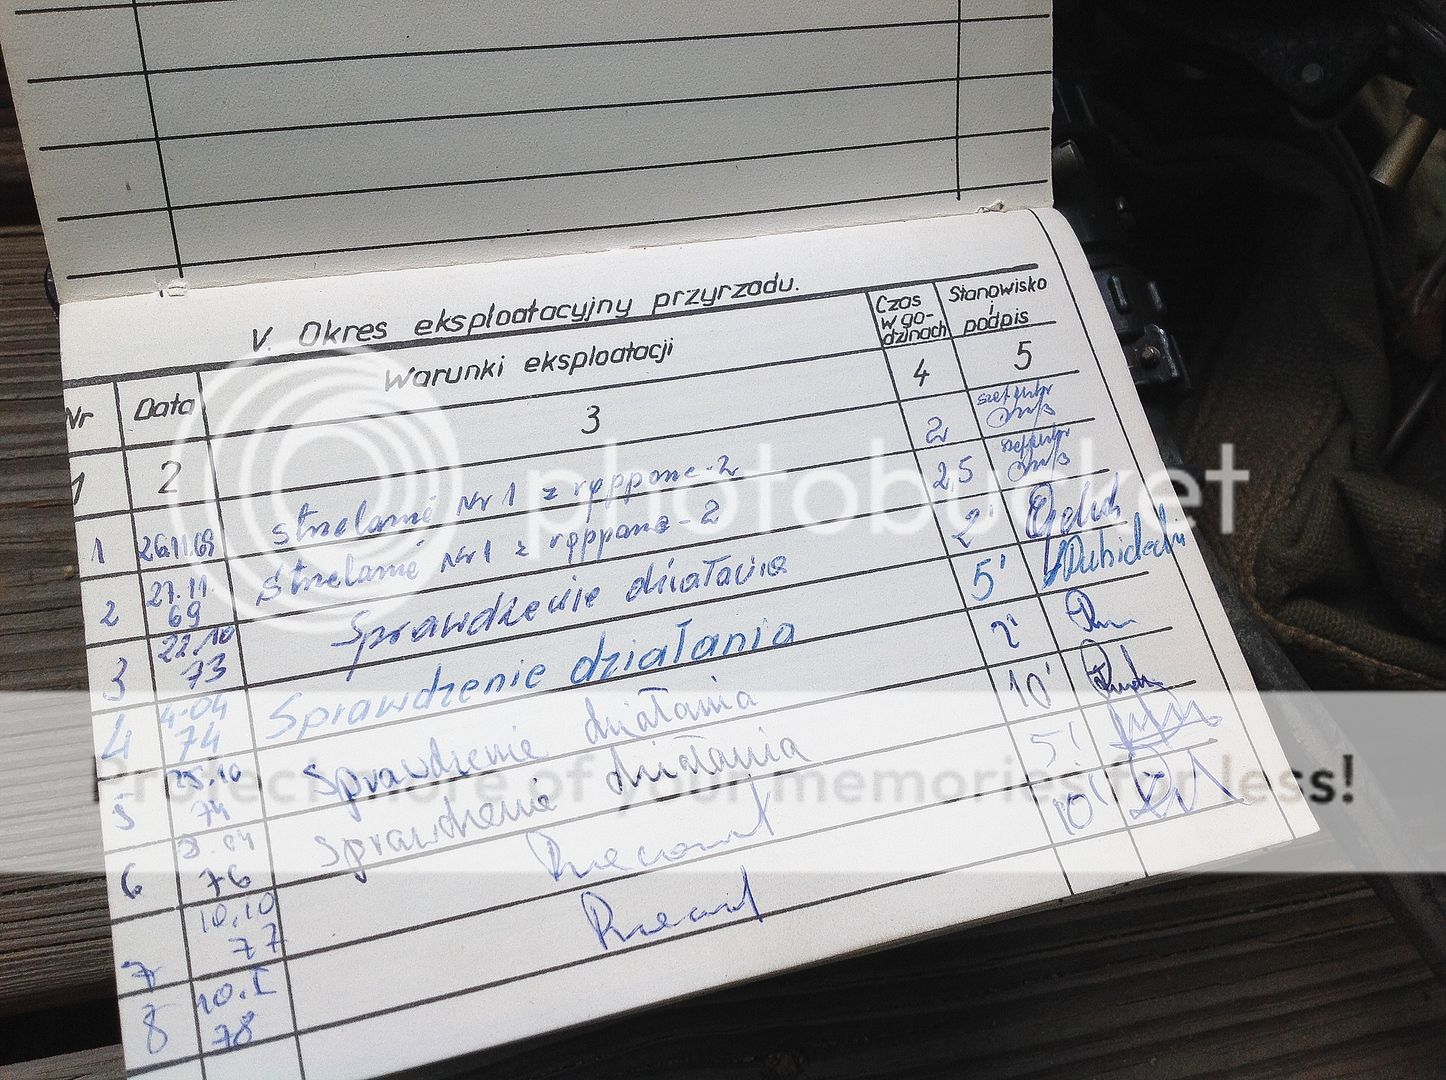 V. Okres eksploatacyjny przyrządu.
Nr Data Warunki eksploatacji Czas w go-dzinach Stanowisko i podpis
1 2 3 4 5
1 26.11.69 strzelanie Nr 1 z rgppanc-2 2
2 27.11 69 strzelanie Nr 1 z rgppanc-2 2,5
3 22.10 73 Sprawdzenie działania 2'
4 4-04 74 Sprawdzenie działania 5'
5 25.10 74 Sprawdzenie działania 2'
6 3.04 76 Sprawdzenie działania 10'
7 10.10 77 5'
8 10.I 78 10'
photobucket
Protect more of your memories for less!